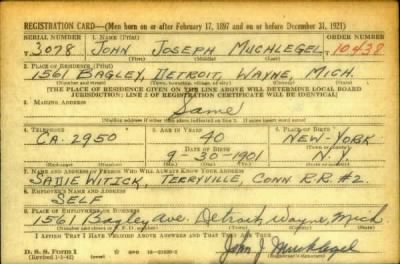 REGISTRATION CARD—(Men born on or after February 17, 1897 and on or before December 31, 1921)
SERIAL NUMBER 1. NAME (Print) ORDER NUMBER
T 3078 JOHN JOSEPH MUCHLEGEL 10438
(First) (Middle) (Last)
2. PLACE OF RESIDENCE (Print)
1561 BAGLEY, DETROIT, WAYNE, MICH.
(Number and street) (Town, township, village, or city) (County) (State)
[THE PLACE OF RESIDENCE GIVEN ON THE LINE ABOVE WILL DETERMINE LOCAL BOARD
JURISDICTION; LINE 2 OF REGISTRATION CERTIFICATE WILL BE IDENTICAL]
3. MAILING ADDRESS
Same
[Mailing address if other than place indicated on line 2. If same insert word same]
4. TELEPHONE 5. AGE IN YEARS 6. PLACE OF BIRTH
CA. 2950 40 NEW-YORK
DATE OF BIRTH (Town or county)
9-30-1901 N.Y.
(Exchange) (Number) (Mo.) (Day) (Yr.) (State or country)
7. NAME AND ADDRESS OF PERSON WHO WILL ALWAYS KNOW YOUR ADDRESS
SADIE WITICK, TERRYVILLE, CONN R.R. #2.
8. EMPLOYER'S NAME AND ADDRESS
SELF
9. PLACE OF EMPLOYMENT OR BUSINESS
1561 Bagley Ave. Detroit Wayne, Mich.
(Number and street or R. F. D. number) (Town) (County) (State)
I AFFIRM THAT I HAVE VERIFIED ABOVE ANSWERS AND THAT THEY ARE TRUE.
D. S. S. Form 1
(Revised 1-1-42) (over)
John J Muchlegel